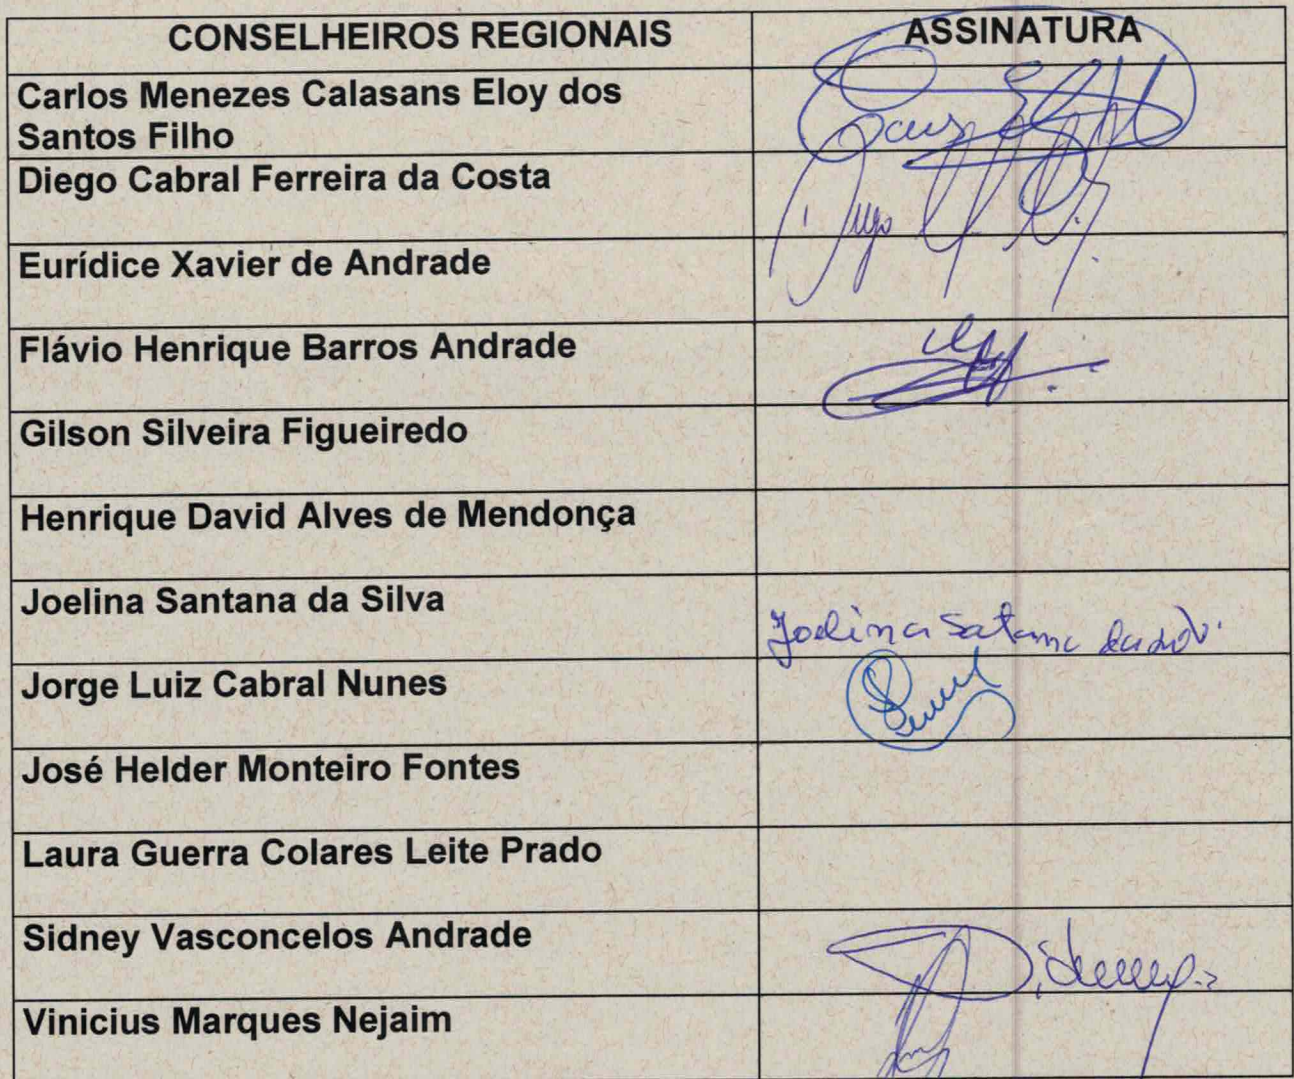 CONSELHEIROS REGIONAIS ASSINATURA
Carlos Menezes Calasans Eloy dos
Santos Filho
Diego Cabral Ferreira da Costa
Eurídice Xavier de Andrade
Flávio Henrique Barros Andrade
Gilson Silveira Figueiredo
Henrique David Alves de Mendonça
Joelina Santana da Silva
Joelina Satana
Jorge Luiz Cabral Nunes
José Helder Monteiro Fontes
Laura Guerra Colares Leite Prado
Sidney Vasconcelos Andrade
Vinicius Marques Nejaim